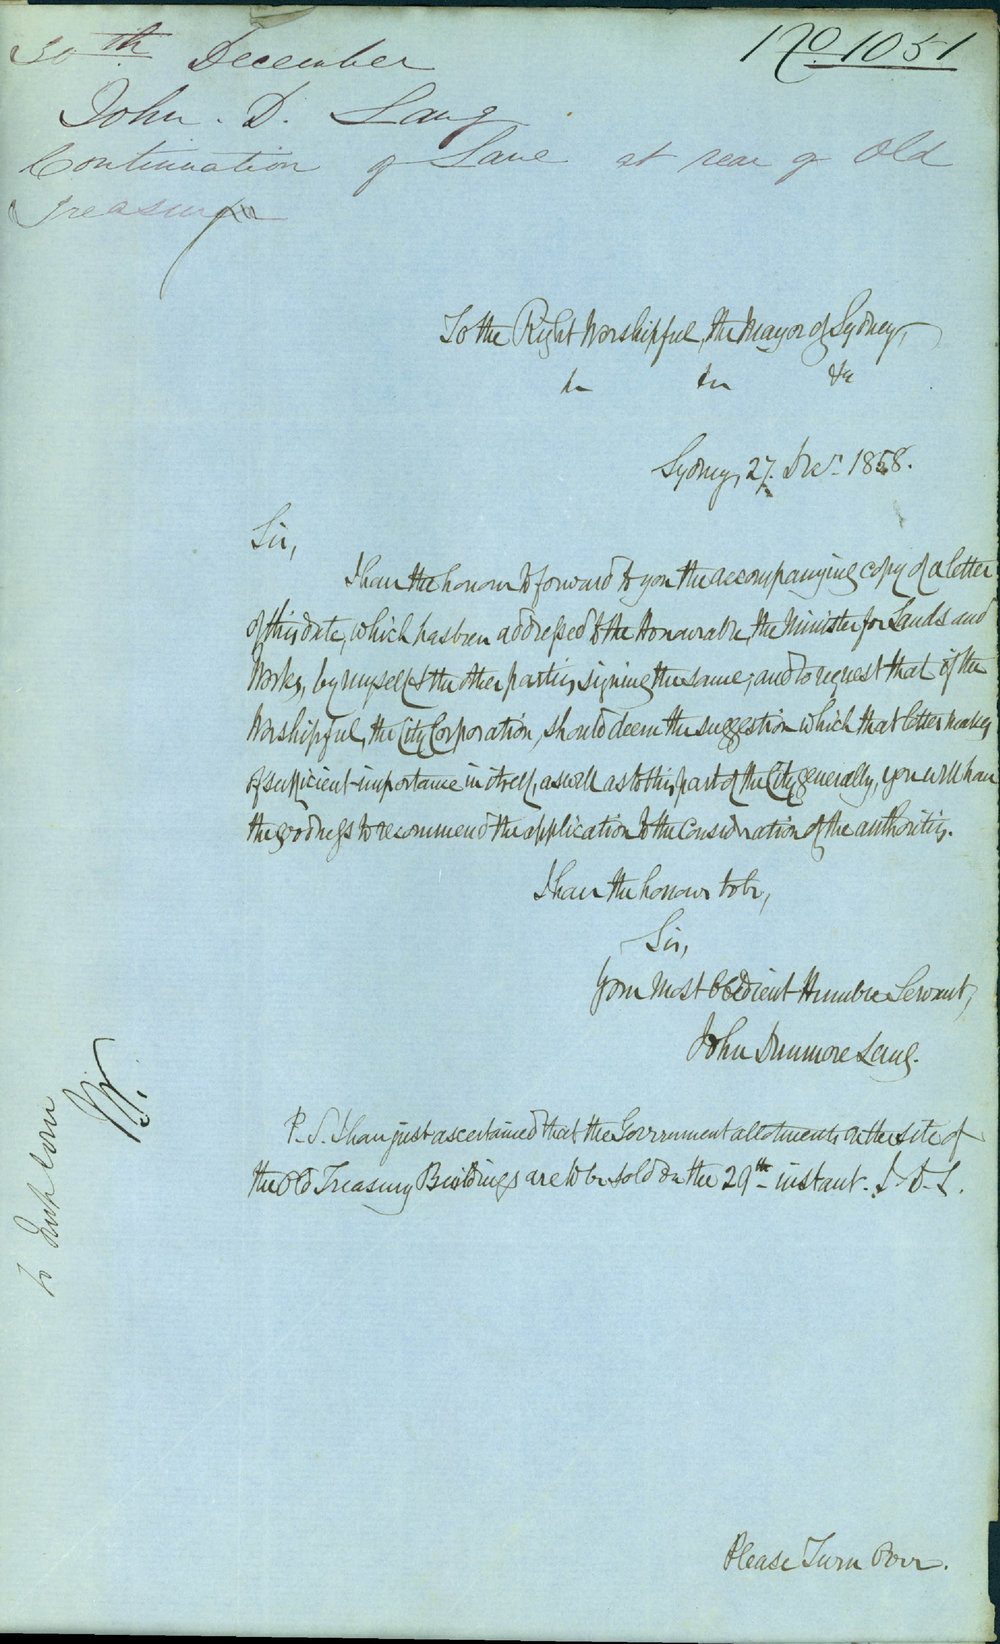 30th December
No. 1051
John. D. Lang
Continuation of Lane at rear of Old
Treasury
To the Right Worshipful, the Mayor of Sydney,
&c &c &c
Sydney, 27. Decr. 1858.
Sir,
I have the honour to forward to you the accompanying copy of a letter
of this date, which has been addressed to the Honourable, the Minister for Lands and
Works, by myself & the other parties signing the same; and to request that if the
Worshipful, the City Corporation, should deem the suggestion which that letter makes,
of sufficient importance in itself, as well as to this part of the City generally, you will have
the goodness to recommend the application to the consideration of the authorities.
I have the honour to be,
Sir,
Your Most Obedient Humble Servant,
John Dunmore Lang.
P.S. I have just ascertained that the Government allotments on the site of
the Old Treasury Buildings are to be sold on the 29th instant. J. D. L.
Please Turn Over.